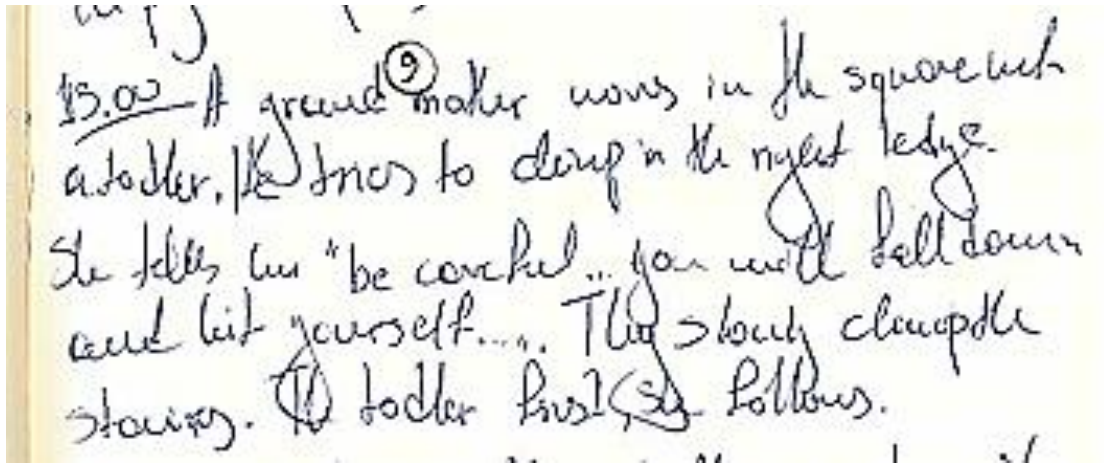 15.00 A grand ⑨ mother moves in the square with
a todler. He tries to climp in the right ledge.
She tells him "be careful... you will fall down
and hit yourself..... They slowly climp the
stairs. The todler first, she follows.